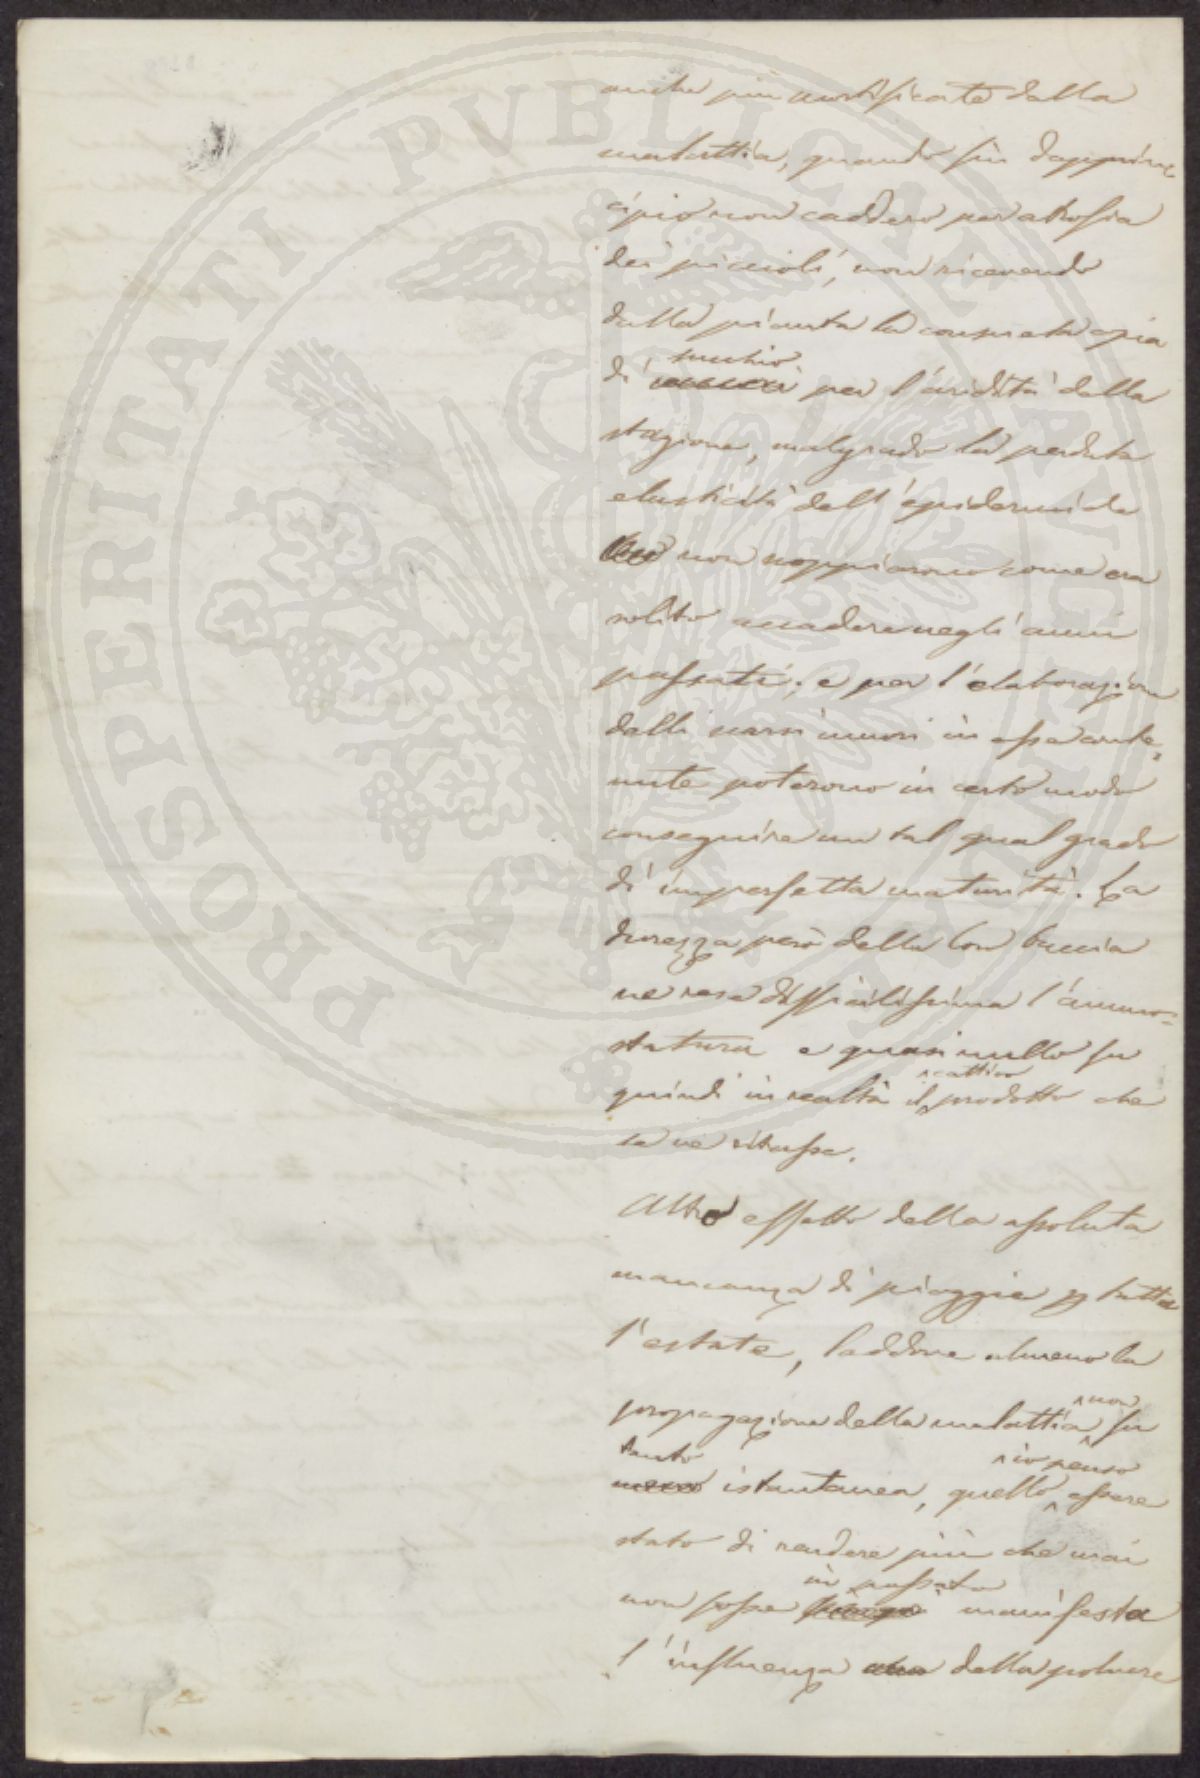 anche più mortificate dalla
malattia, quando fin dapprin
cipio non caddero per atrofia
dei piccioli, non ricevendo
dalla pianta la consueta copia
succhio
di per l'aridità della
stagione, malgrado la perduta
elasticità dell'epidermide
non scoppiarono come era
solito accadere negli anni
passati; e per l'elaborazione
delli umori in esse conte=
nute poterono in certo modo
conseguire un tal qual grado
di imperfetta maturità. La
durezza però della lor buccia
ne rese difficilissima l'ammo=
statura e quasi nullo fu
cattivo
quindi in realtà il prodotto che
se ne ritrasse.
Altro effetto della assoluta
mancanza di pioggie tutta
l'estate, laddove almeno la
non
propagazione della malattia fu
tanto
io penso
meno istantanea, quello essere
stato di rendere più che mai
in passato
non fosse manifesta
l'influenza della polvere
PROSPERITATI PVBLICAE AVGENDAE